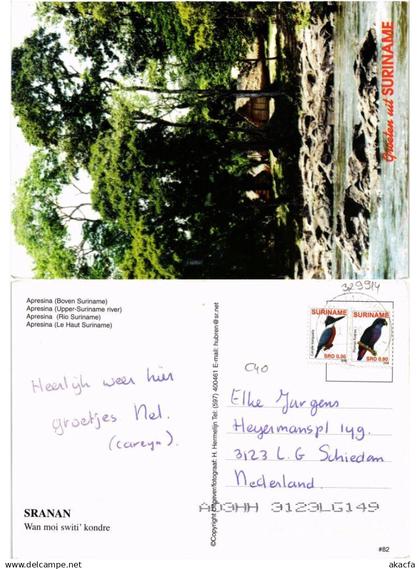 Groeten uit SURINAME
329914
Apresina (Boven Suriname)
Apresina (Upper-Suriname river)
Apresina (Rio Suriname)
Apresina (Le Haut Suriname)
SURINAME
SURINAME
SRD
SRD
Heerlijk weer hier
groetjes Nel.
(careyn).
©Copyright uitgever/fotograaf: H. Hermelijn Tel. (597) 400461 E-mail: hubren@sr.net
C40
Elke Jurgens
Heyermanspl 149.
3123 L.G Schiedam
Nederland.
3123LG149
SRANAN
Wan moi switi' kondre
#82
www.delcampe.net
akacfa